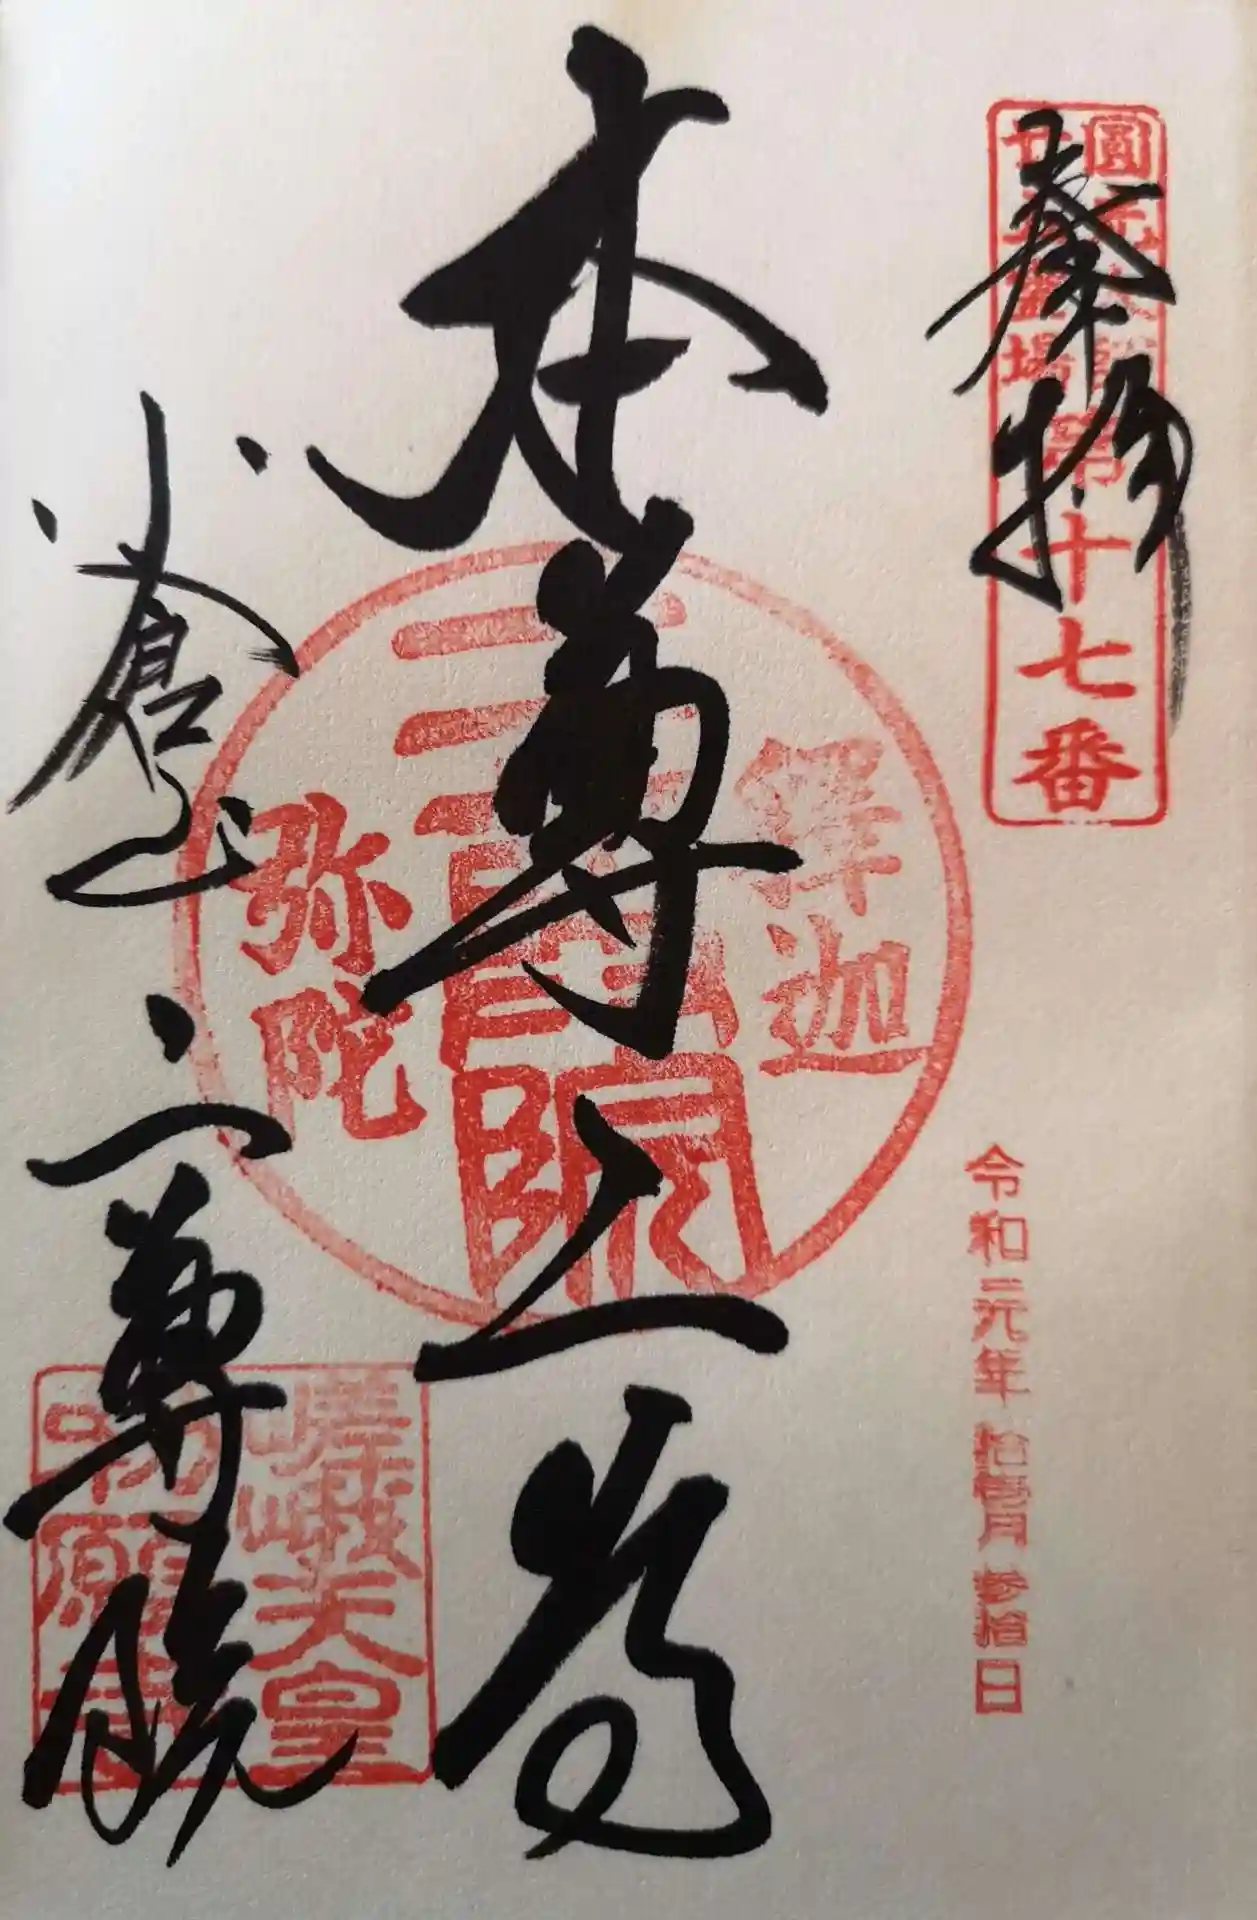 奉拝
圓光大師
廿五霊場第十七番
本尊二尊
釋迦
二尊院
弥陀
令和元年拾壱月参拾日
小倉山
二尊院
嵯峨天皇
勅願寺